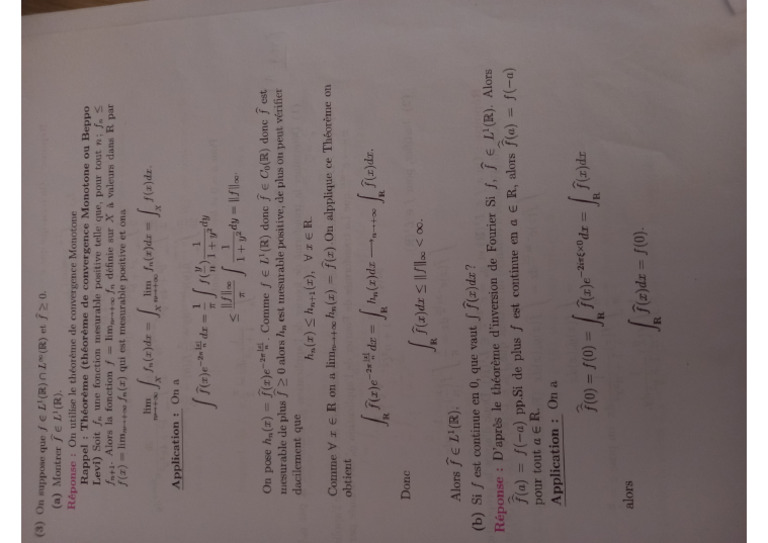 (3) On suppose que f ∈ L¹(ℝ) ∩ L^∞(ℝ) et f̂ ≥ 0.
(a) Montrer f̂ ∈ L¹(ℝ).
Réponse : On utilise le théorème de convergence Monotone
Rappel : Théorème (théorème de convergence Monotone ou Beppo
Levi) Soit fₙ une fonction mesurable positive telle que, pour tout n : fₙ ≤
fₙ₊₁. Alors la fonction f = lim_{n→+∞} fₙ définie sur X à valeurs dans R par
f(x) = lim_{n→+∞} fₙ(x) qui est mesurable positive et ona
lim_{n→+∞} ∫_X fₙ(x)dx = ∫_X lim_{n→+∞} fₙ(x)dx = ∫_X f(x)dx.
Application : On a
∫ f̂(x)e^{-2π|x|/n} dx = 1/π ∫ f(y/n) 1/(1+y²) dy
≤ ‖f‖_∞/π ∫ 1/(1+y²) dy = ‖f‖_∞.
On pose hₙ(x) = f̂(x)e^{-2π|x|/n}. Comme f ∈ L¹(ℝ) donc f̂ ∈ C₀(ℝ) donc f̂ est
mesurable de plus f̂ ≥ 0 alors hₙ est mesurable positive, de plus on peut vérifier
dacilement que
hₙ(x) ≤ hₙ₊₁(x), ∀ x ∈ ℝ.
Comme ∀ x ∈ ℝ on a lim_{n→+∞} hₙ(x) = f̂(x).On alpplique ce Théorème on
obtient
∫_R f̂(x)e^{-2π|x|/n} dx = ∫_R hₙ(x)dx ⟶_{n→+∞} ∫_R f̂(x)dx.
Donc
∫_R f̂(x)dx ≤ ‖f‖_∞ < ∞.
Alors f̂ ∈ L¹(ℝ).
(b) Si f est continue en 0, que vaut ∫ f̂(x)dx?
Réponse : D'après le théorème d'inversion de Fourier Si f, f̂ ∈ L¹(ℝ). Alors
f̂(a) = f(−a) pp.Si de plus f est continue en a ∈ ℝ, alors f̂(a) = f(−a)
pour tout a ∈ ℝ.
Application : On a
f̂(0) = f(0) = ∫_R f̂(x)e^{-2iπξ×0} dx = ∫_R f̂(x)dx
alors
∫_R f̂(x)dx = f(0).